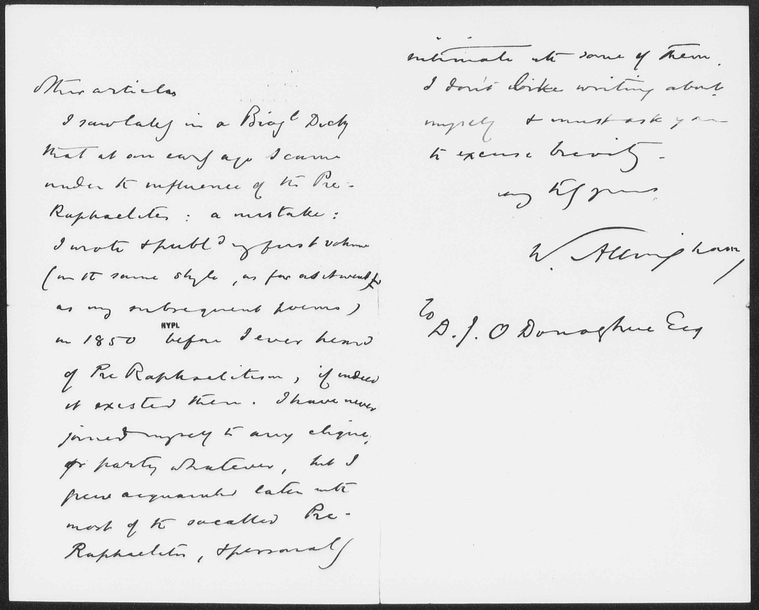 other articles
I saw lately in a Biogl Dicty
that at an early age I came
under th influence of the Pre-
Raphaelites : a mistake :
I wrote & publd my first volume
(in th same style, as far as it went,
as my subsequent poems)
in 1850 before I ever heard
NYPL
of Pre Raphaelitism, if indeed
it existed then. I have never
joined myself to any clique,
or party whatever, but I
grew acquainted later with
most of th socalled Pre-
Raphaelites, & personally
intimate with some of them.
I don't like writing about
myself & must ask you
to excuse brevity.
yours
W. Allingham
To
D. J. O Donoghue Esq